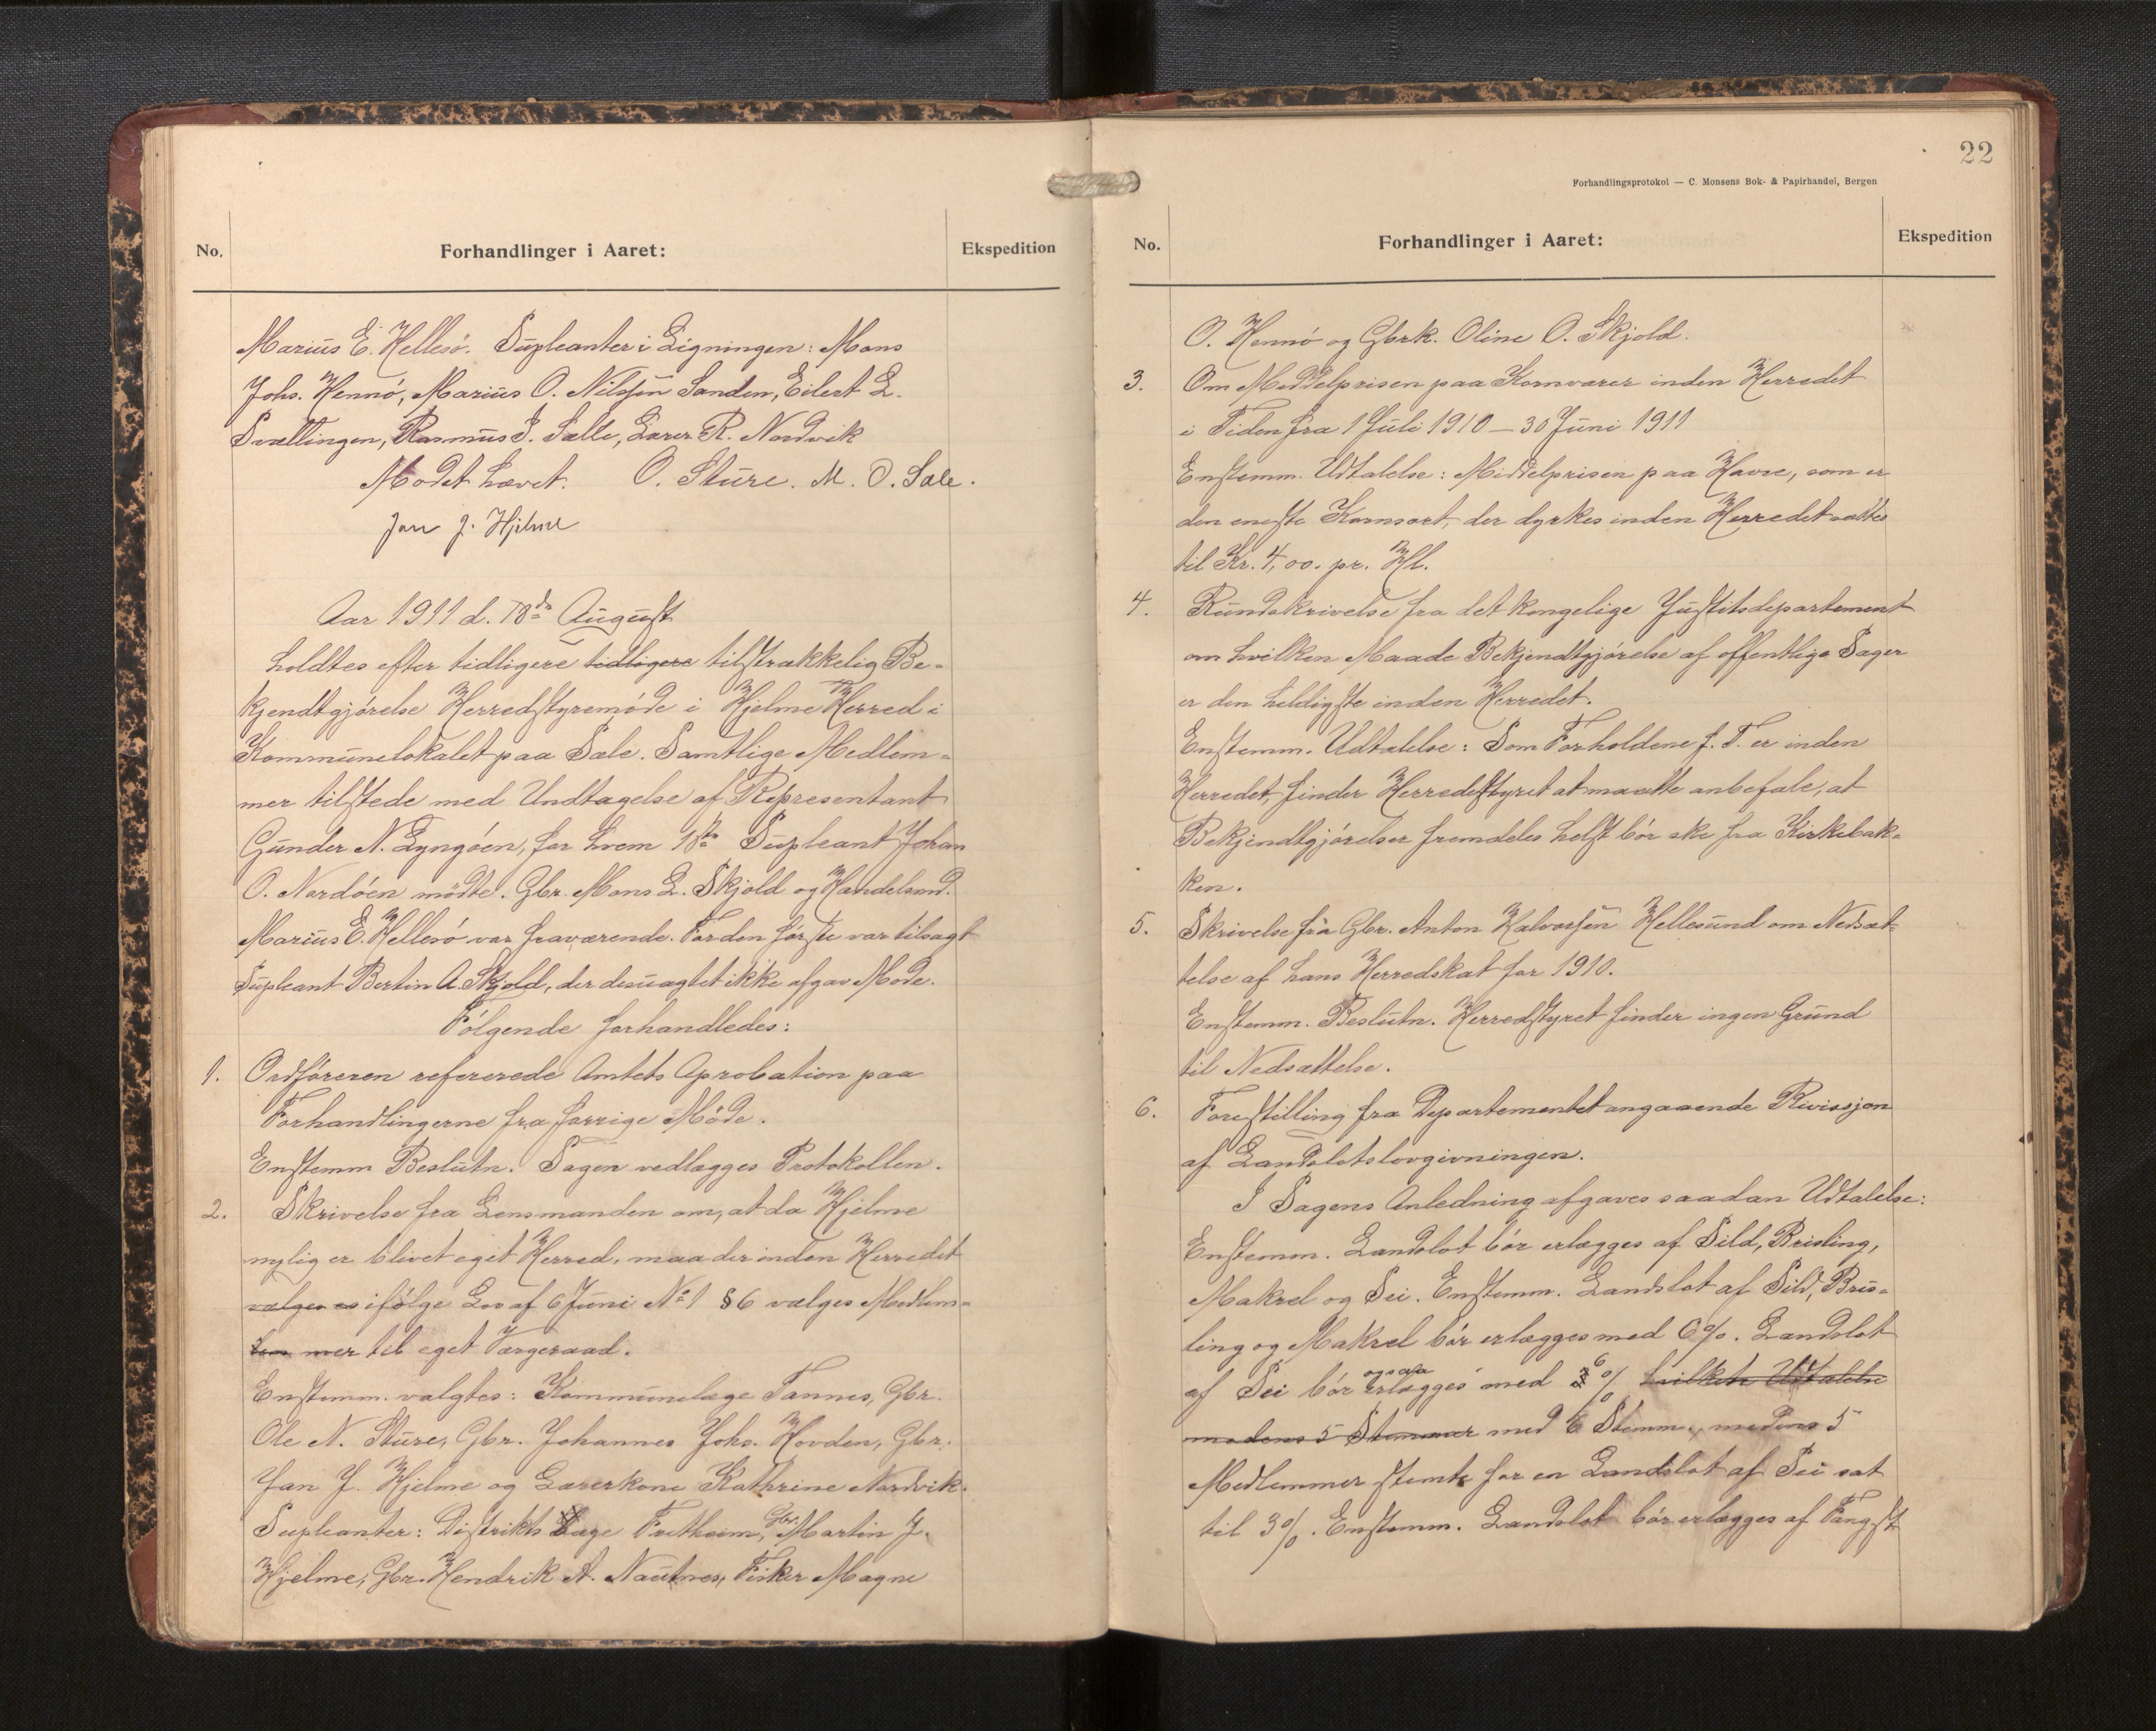 No.
Forhandlinger i Aaret:
Ekspedition
Marius E. Hellesö. Supleanter i Ligningen: Mons
Johs. Hennö, Marius O. Nilssen Sanden, Eilert L.
Svellingen, Rasmus I. Sælle, Lærer R. Nordvik
Mödet hævet. O. Sture. M. O. Sæle.
Jan J. Hjelme
Aar 1911 d. 18de August
holdtes efter tidligere tidligere tilstrækkelig Be-
kjendtgjørelse Herredstyremöde i Hjelme Herred i
Kommunelokalet paa Sæle. Samtlige Medlem-
mer tilstede med Undtagelse af Representant
Gunder N. Lyngöen, for hvem 1ste Supleant Johan
O. Nordöen mödte. Gbr. Mons L. Skjold og Handelsmd.
Marius E. Hellesö var fraværende. For den förste var tilsagt
Supleant Bertin A. Skjold, der desuagtet ikke afgav Möde.
Fölgende forhandledes:
1. Ordföreren refererede Amtets Aprobation paa
Forhandlingerne fra forrige Möde.
Enstemm Beslutn. Sagen vedlægges Protokollen.
2. Skrivelse fra Lensmanden om, at da Hjelme
nylig er blivet eget Herred, maa der inden Herredet
vælges es ifölge Lov af 6 Juni No 1 § 6 vælges Medlem-
mer til eget Værgeraad.
Enstemm. valgtes: Kommunelæge Tannes, Gbr.
Ole N. Sture, Gbr. Johannes Johs. Hovden, Gbr.
Jan J. Hjelme og Lærerkone Kathrine Nordvik.
Supleanter: Distrikts Læge Fretheim, Gbr. Martin J.
Hjelme, Gbr. Hendrik A. Nautnes, Fisker Magne
22
Forhandlingsprotokol — C. Monsens Bok- & Papirhandel, Bergen
No.
Forhandlinger i Aaret:
Ekspedition
O. Hennö og Gbrk. Oline O. Skjold.
3. Om Middelprisen paa Kornvarer inden Herredet
i Tiden fra 1 Juli 1910 – 30 Juni 1911
Enstemm. Udtalelse: Middelprisen paa Havre, som er
den eneste Kornsort, der dyrkes inden Herredet sættes
til Kr. 4,00. pr. Hl.
4. Rundskrivelse fra det kongelige Justitsdepartement
om hvilken Maade Bekjendtgjörelse af offentlige Sager
er den heldigste inden Herredet.
Enstemm. Udtalelse: Som Forholdene f. T. er inden
Herredet, finder Herredsstyret at maatte anbefale, at
Bekjendtgjörelser fremdeles helst bör ske fra Kirkebak-
ken.
5. Skrivelse fra Gbr. Anton Halvorsen Hellesund om Nedsæt-
telse af hans Herredskat for 1910.
Enstemm. Beslutn. Herredstyret finder ingen Grund
til Nedsættelse.
6. Forestilling fra Departementet angaaende Rivissjon
af Landslotslovgivningen.
I Sagens Anledning afgaves saadan Udtalelse:
Enstemm. Landslot bör erlægges af Sild, Brisling,
Makrel og Sei. Enstemm. Landslot af Sild, Bris-
ling og Makrel bör erlægges med 6%. Landslot
af Sei bör ogsaa erlægges med 6% hvilken Udtalelse
medens 5 Stemmer med 6 Stemm., medens 5
Medlemmer stemte for en Landslot af Sei sat
til 3%. Enstemm. Landslot bör erlægges af Fangst